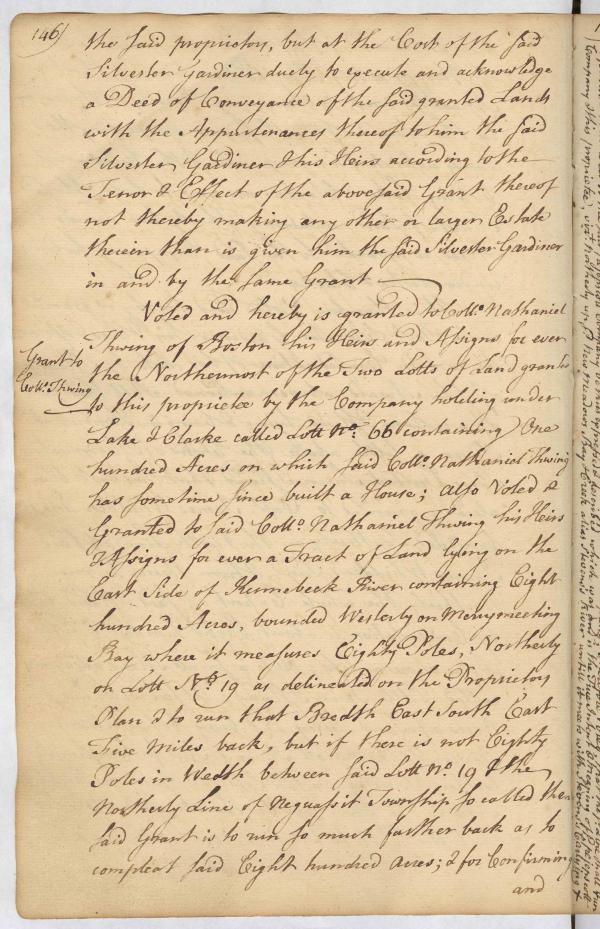 146)
the said proprietors, but at the Cost of the said
Silvester Gardiner duely to execute and acknowledge
a Deed of Conveyance of the said granted Lands
with the Appurtenances thereof to him the said
Silvester Gardiner & his Heirs according to the
Tenor & Effect of the abovesaid Grant thereof
not thereby making any other or larger Estate
therein than is given him the said Silvester Gardiner
in and by the same Grant
Voted and hereby is granted to Coll.o Nathaniel
Grant to
Coll.o Thwing
Thwing of Boston his Heirs and Assigns for ever
the Northernmost of the Two Lotts of Land granted
to this proprietee by the Company holding under
Lake & Clarke called Lott No. 66 containing One
hundred Acres on which said Coll.o Nathaniel Thwing
has sometime since built a House; also Voted &
Granted to said Coll.o Nathaniel Thwing his Heirs
& Assigns for ever a Tract of Land lying on the
East Side of Kennebeck River containing Eight
hundred Acres, bounded Westerly on Merrymeeting
Bay where it measures Eighty Poles, Northerly
on Lott No. 19 as delineated on the Proprietors
Plan & to run that Bredth East South East
Five Miles back, but if there is not Eighty
Poles in Wedth between said Lott No. 19 & the
Northerly Line of Neguassit Township so called then
said Grant is to run so much farther back as to
compleat said Eight hundred Acres; & for Confirming
and